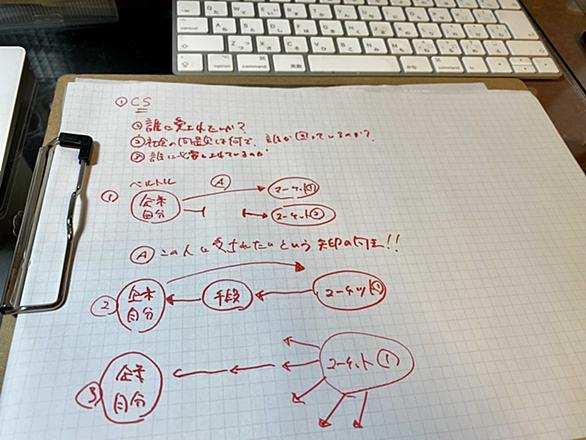 ① CS
① 誰に愛されたいか?
② 社会の問題点は何で、誰が困っているのか?
③ 誰に必要とされているのか
ベルトル
Ⓐ
① 企業 自分
マーケット①
マーケット②
Ⓐ この人に愛されたいという矢印の向き!!
② 企業 自分 手段 マーケット①
③ 企業 自分 マーケット①
control option command 英数 かな command